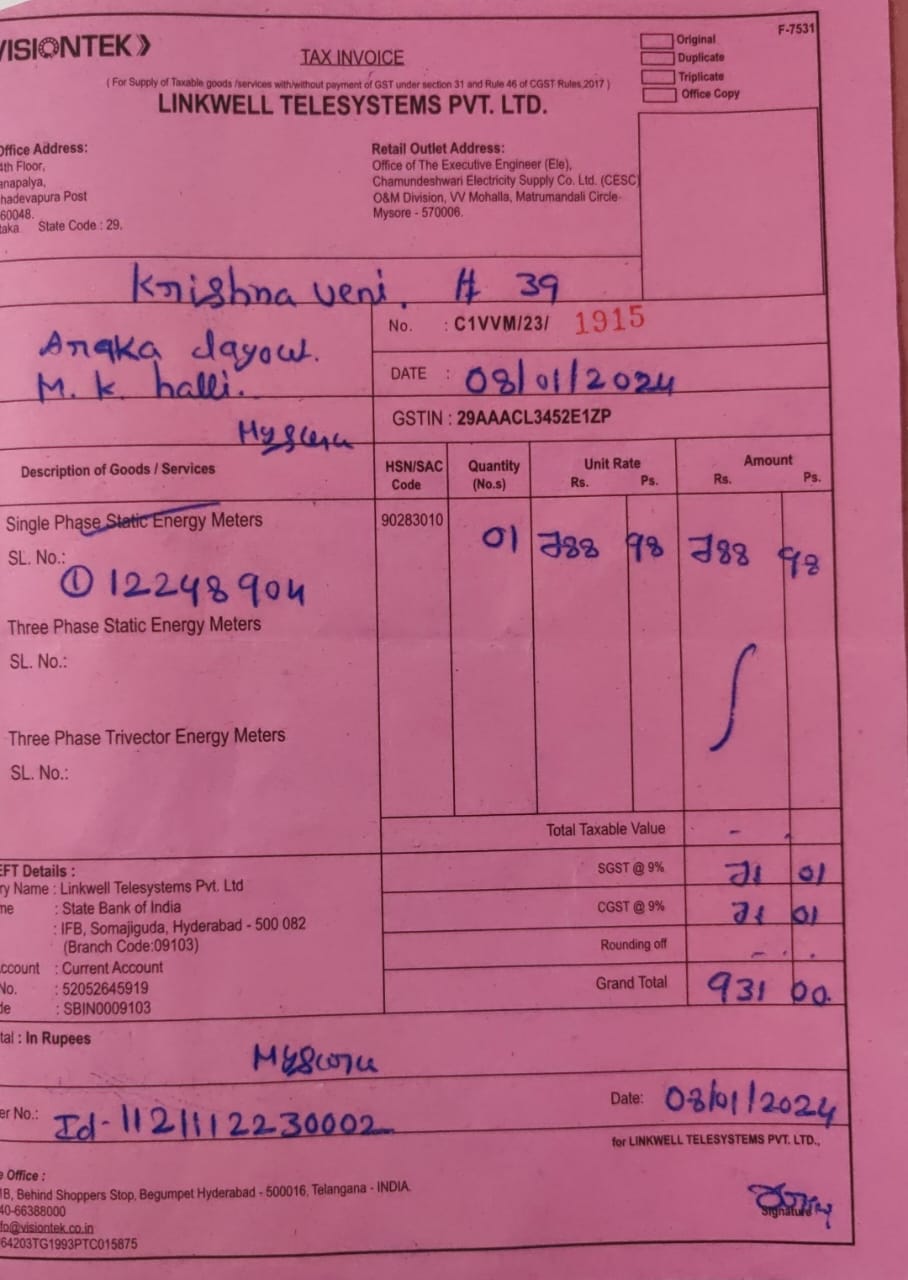 VISIONTEK
F-7531
TAX INVOICE
Original
Duplicate
Triplicate
Office Copy
( For Supply of Taxable goods /services with/without payment of GST under section 31 and Rule 46 of CGST Rules,2017 )
LINKWELL TELESYSTEMS PVT. LTD.
Office Address:
4th Floor,
anapalya,
hadevapura Post
60048.
taka State Code : 29.
Retail Outlet Address:
Office of The Executive Engineer (Ele),
Chamundeshwari Electricity Supply Co. Ltd. (CESC)
O&M Division, VV Mohalla, Matrumandali Circle-
Mysore - 570006.
Krishna veni. # 39
No. : C1VVM/23/ 1915
M. K. halli.
DATE : 08/01/2024
GSTIN : 29AAACL3452E1ZP
Description of Goods / Services HSN/SAC Code Quantity (No.s) Unit Rate Rs. Ps. Amount Rs. Ps.
Single Phase Static Energy Meters 90283010 01 788 98 788 98
SL. No.:
① 12248904
Three Phase Static Energy Meters
SL. No.:
Three Phase Trivector Energy Meters
SL. No.:
Total Taxable Value - .
SGST @ 9% 71 01
CGST @ 9% 71 01
Rounding off - . .
Grand Total 931 00.
EFT Details :
ry Name : Linkwell Telesystems Pvt. Ltd
me : State Bank of India
: IFB, Somajiguda, Hyderabad - 500 082
(Branch Code:09103)
ccount : Current Account
No. : 52052645919
de : SBIN0009103
tal : In Rupees
er No.: Id-1121112230002
Date: 08/01/2024
for LINKWELL TELESYSTEMS PVT. LTD.,
e Office :
1B, Behind Shoppers Stop, Begumpet Hyderabad - 500016, Telangana - INDIA.
40-66388000
fo@visiontek.co.in
64203TG1993PTC015875
Signature